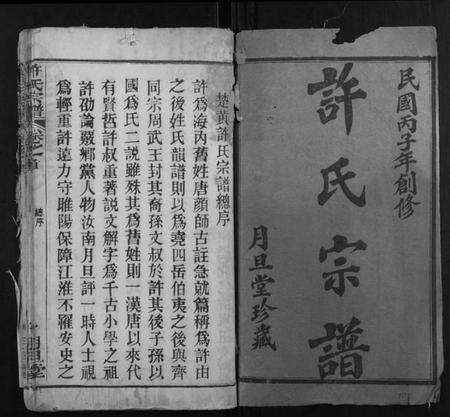 民國丙子年創修
許氏宗譜
月旦堂珍藏
楚黃許氏宗譜總序
許為海內舊姓唐顏師古註急就篇稱為許由
之後姓氏韻譜則以為堯四岳伯夷之後與齊
同宗周武王封其裔孫文叔於許其後子孫以
國為氏二說雖殊其為舊姓則一漢唐以來代
有賢哲許叔重著說文解字為千古小學之祖
許劭論覈鄉黨人物汝南月旦評一時人士視
為輕重許遠力守睢陽保障江淮不罹安史之
許氏宗譜
卷之首
總序
月旦堂